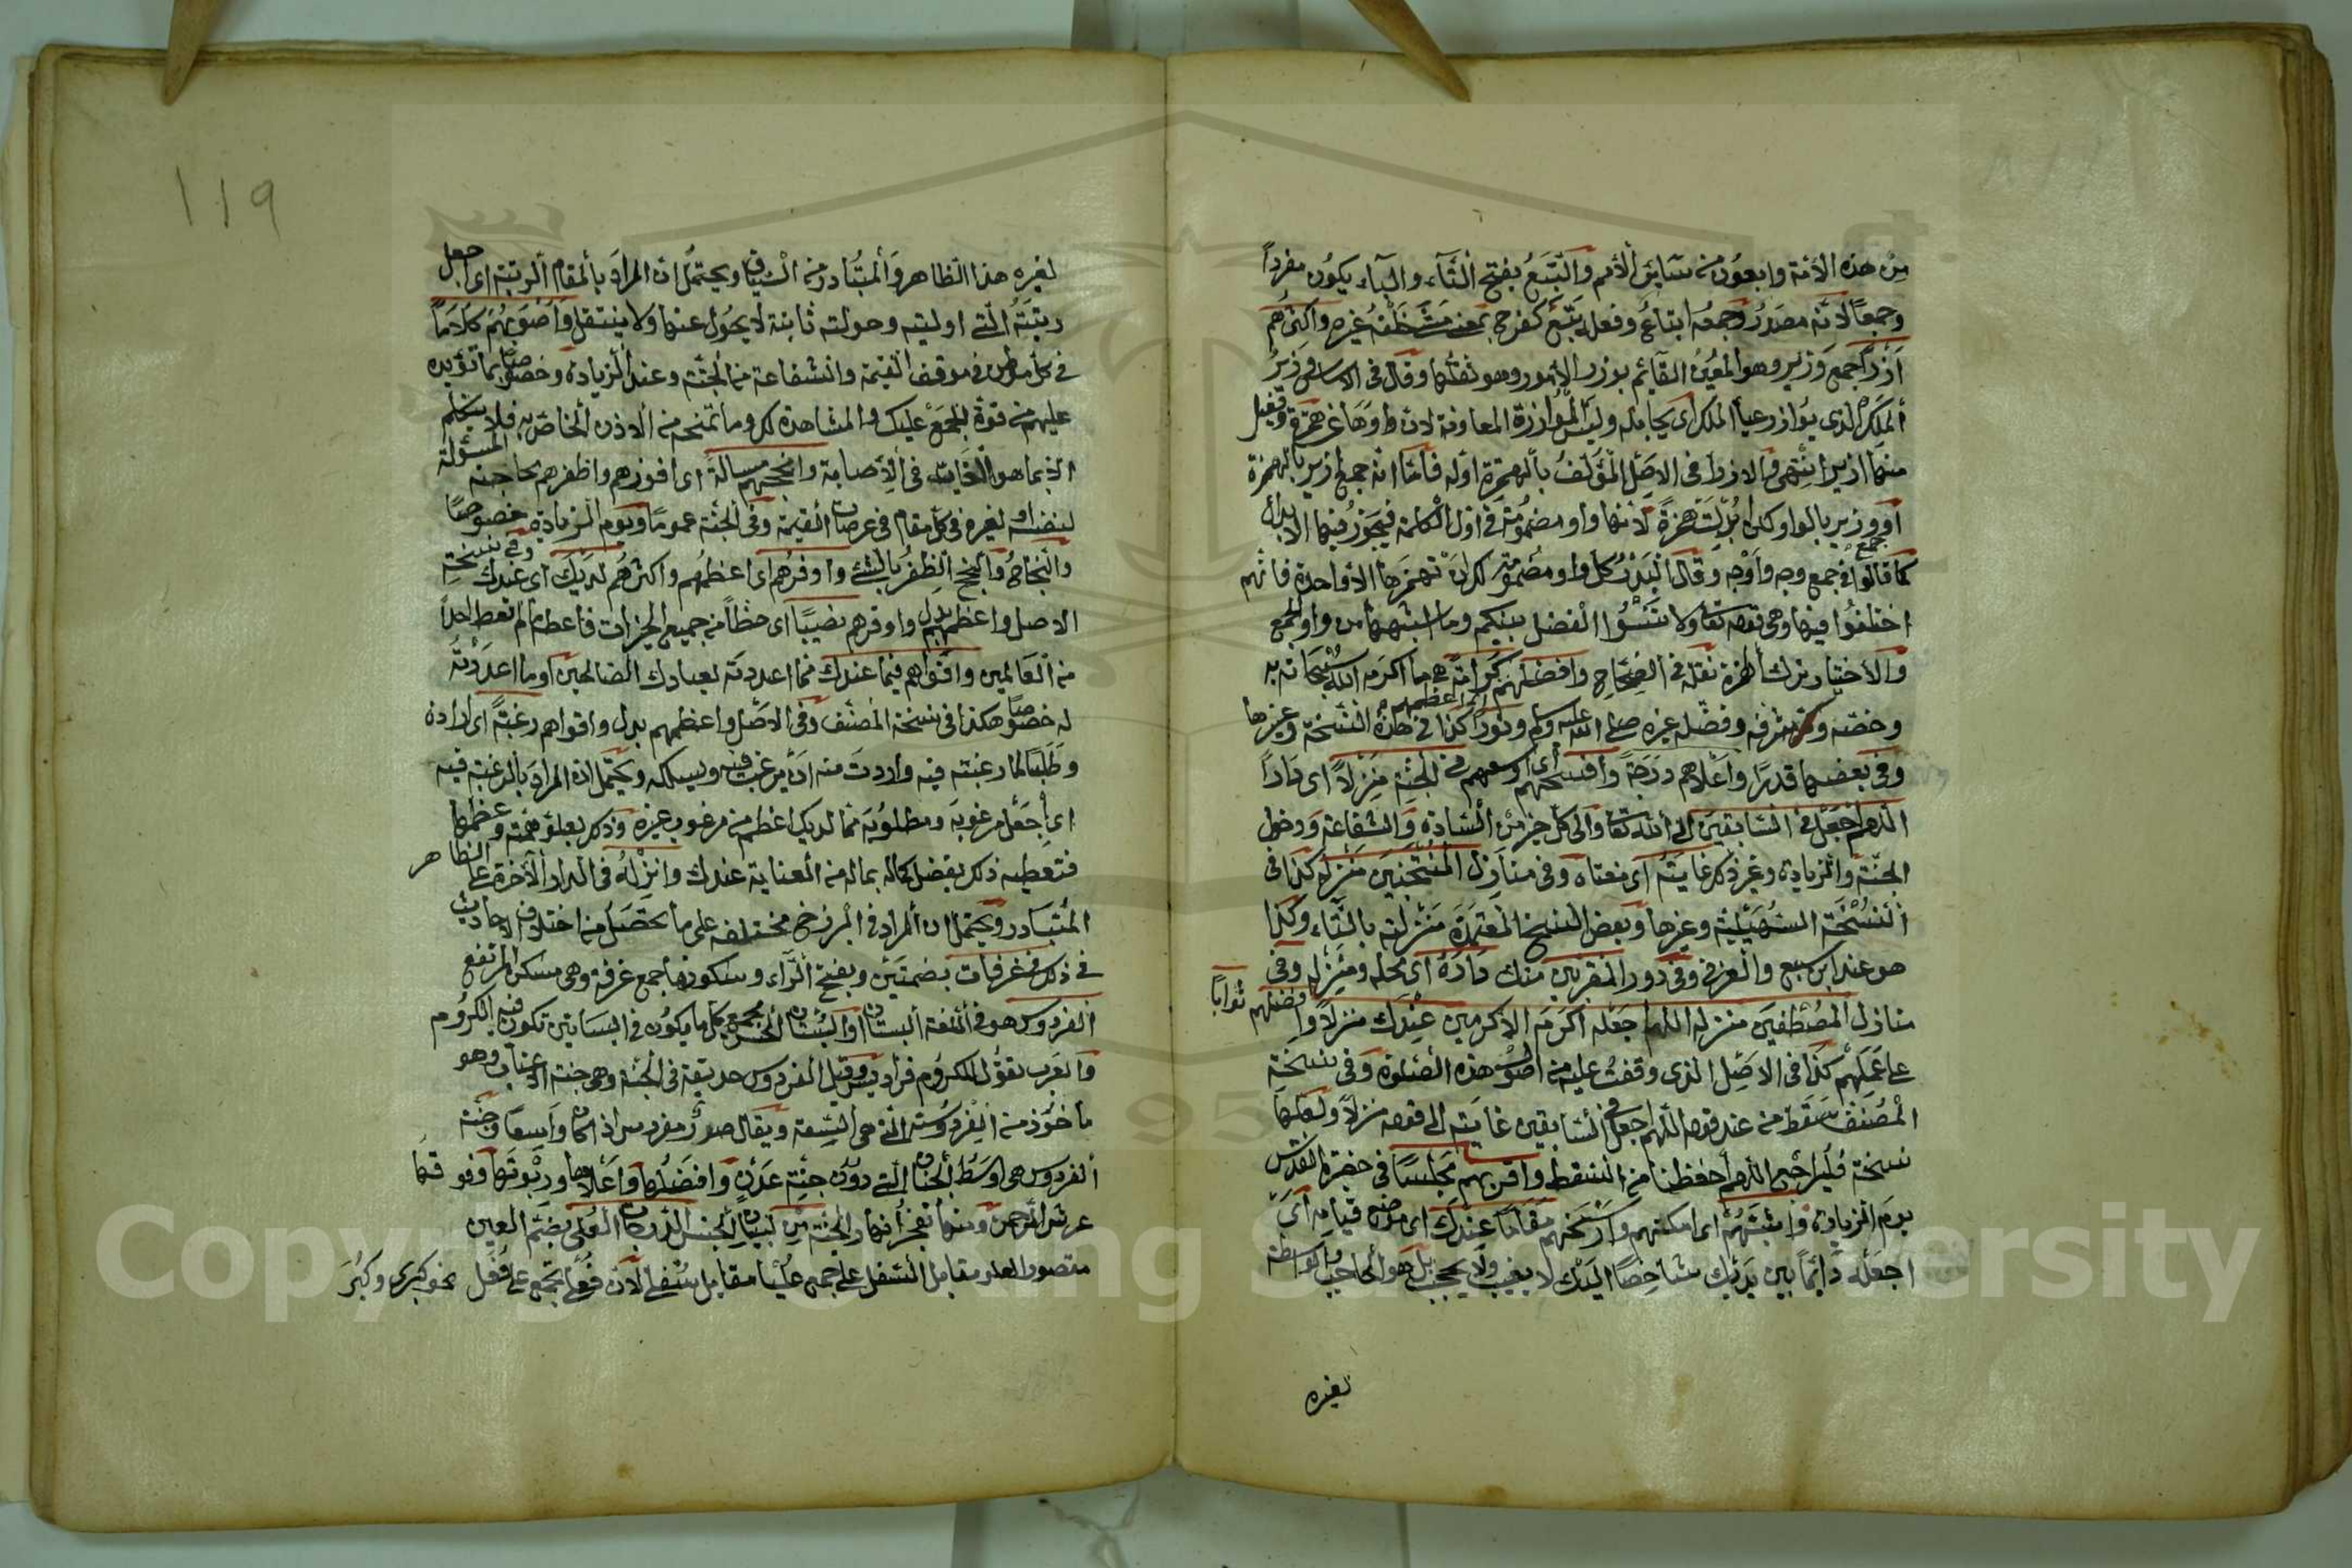 من هذه الأمة وابعون من سائر الأمم والتبع بفتح التاء والباء يكون مفرداً
وجمعاً لانه مصدر وجمعه اتباع وفعله تبع كفرح بمعنى مشى خلفه غيره واكثرهم
أزراً جمع وزير وهو المعين القائم بوزر الأمور وهو ثقلها وقال في الاساس وزير
الملك الذي يوازر اعباء الملك اى يحامله وليس المؤازرة المعاونة لان واوها عن همزة وفعيل
منها ازير انتهى والازراء في الاصل المؤلف بألهمزة اوله فاما انه جمع ازير بالهمزة
أو وزير بالواو وكل ابدلت همزة لأنها واو مضمومة في اول الكلمة فيجوز فيها الابدال
كما قالوا في جمع وجه وأوجه وقال البدر كل واو مضمومة لك ان تهمزها الا واحدة فانهم
اختلفوا فيها وهى قوله تعا ولا تنسوا الفضل بينكم وما اشبهها من واو الجمع
والأختيار ترك الهمزة نقله في الصحاح وافضلهم كرامة هى ما اكرمه الله سبحانه به
وخصه وشرفه وفضله غيره صلى الله عليه وكم ونورا كذا في هذه النسخة وغيرها
وفى بعضها قدرا وأعلاهم درجة وأفسحهم أى اوسعهم في الجنة منزلاً اى داراً
اللهم اجعل في السابقين الى الله تعا والى كل خير من السادة والشفاعة ودخول
الجنة والزيادة وغير ذكر غايته اى منتهاه وفى منازل المنتخبين منزله كذا فى
النسخة السهيلية وغيرها وبعض النسخ المعتمدة منزلته بالتاء وكذا
هو عند ابن سبع والعزفي وفى دور المقربين منك داره اى محله ومنزله وفى
منازل المصطفين منزله اللهم اجعله اكرم الاكرمين عندك منزلاً وافضلهم ثواباً
على عملهم كذا فى الاصل الذى وقفت عليه من اصول هذه الصلوة وفى نسخة
المصنف سقط من عند قوله اللهم اجعل فى السابقين غايته الى قوله منزلا ولعلها
نسخة فليراجع اللهم احفظنا من السقط واقربهم مجلسا فى حضرة القدس
يوم الزيادة واثبتهم اى امكنهم وارسخهم مقاما عندك اى موضع قيامه اى
اجعله دائما بين يديك شاخصا اليك لا يغيب ولا يحجب بل هو الحاجب والواسطة
لغيره
119
لغيره هذا الظاهر والمتبادر من السياق ويحتمل ان المراد بألمقام ألرتبة اى اجعل
رتبته التى اوليته وخولته ثابتة لا يحول عنها ولا ينتقل وأصوبهم كلاماً
فى كل موطن فى موقف القيمة والشفاعة من الجنة وعند الزيادة وخصوصا بما تؤيده
عليهم من قوة الجمع عليك والمشاهدة لك وما تمنحه من ألاذن ألخاص به فلا يتكلم
الا بما هو الغاية فى ألأصابة وانجحهم مسألة اى افوزهم واظفرهم بحاجته المسؤلة
لنفسه او لغيره فى كل مقام فى عرصات القيمة وفى الجنة عموما ويوم الزيادة خصوصا
والنجاح وألنجح الظفر بالشئ واوفرهم اى اعظمهم واكثرهم لديك اى عندك وفى نسخة
الاصل واعظمهم بدل واوفرهم نصيبًا اى حظا من جميع الخيرات فأعطه ما لم تعط احداً
من العالمين واقواهم فيما عندك مما اعددته لعبادك الصالحين أو ما اعددته
له خصوصا هكذا فى نسخة المصنف وفى الاصل واعظمهم بدل واقواهم رغبة اى ارادة
وطلبا لما رغبته فيه واردت منه ان يرغب فيه ويسلكه ويحتمل ان المراد بالرغبة فيه
اى أجعل مرغوبه ومطلوبه مما لديك اعظم من مرغوب غيره وذكر بعلو همته وعظمها
فتعطيه ذكر بفضل كماله بماله من ألعناية عندك وانزله فى الدار الآخرة على الظاهر
المتبادر ويحتمل ان ألمراد فى البرزخ مختلفه على ما يحصل من اختلاف الاحاديث
فى ذلك فى غرفات بضمتين وبفتح ألراء وسكونها جمع غرفة وهى مسكن المرتفع
الفردوس هو فى اللغة البستان أو ألبستان الحسن يجمع كل ما يكون فى البساتين تكون فيه الكروم
وألعرب تقول للكروم فراديس وقيل الفردوس حديقة فى الجنة وهى جنة الأعناب وهو
ماخوذ من الفردسة التى هى السعة ويقال صدر مفردس اذا كان واسعا وجنة
ألفردوس هى اوسط ألجنان التى دون جنة عدن وافضلها وأعلاها وربوتها وفوقها
عرش الرحمن ومنها تفجر أنهار الجنة من لبيان ألجنس الدرجات العلى بضم العين
مقصورا لعلو مقابل السفل على جمع عليا مقابل سفلى لأن فعلى يجمع على فعل نحو كبرى وكبر